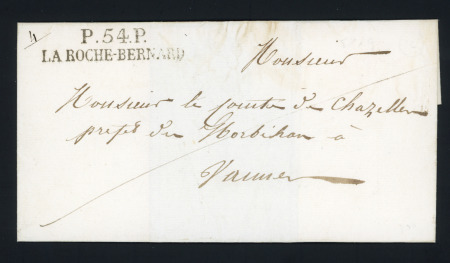 4
P.54.P.
LA ROCHE-BERNARD
Monsieur
Monsieur le comte de Chazelles
préfet du Morbihan à
Vannes